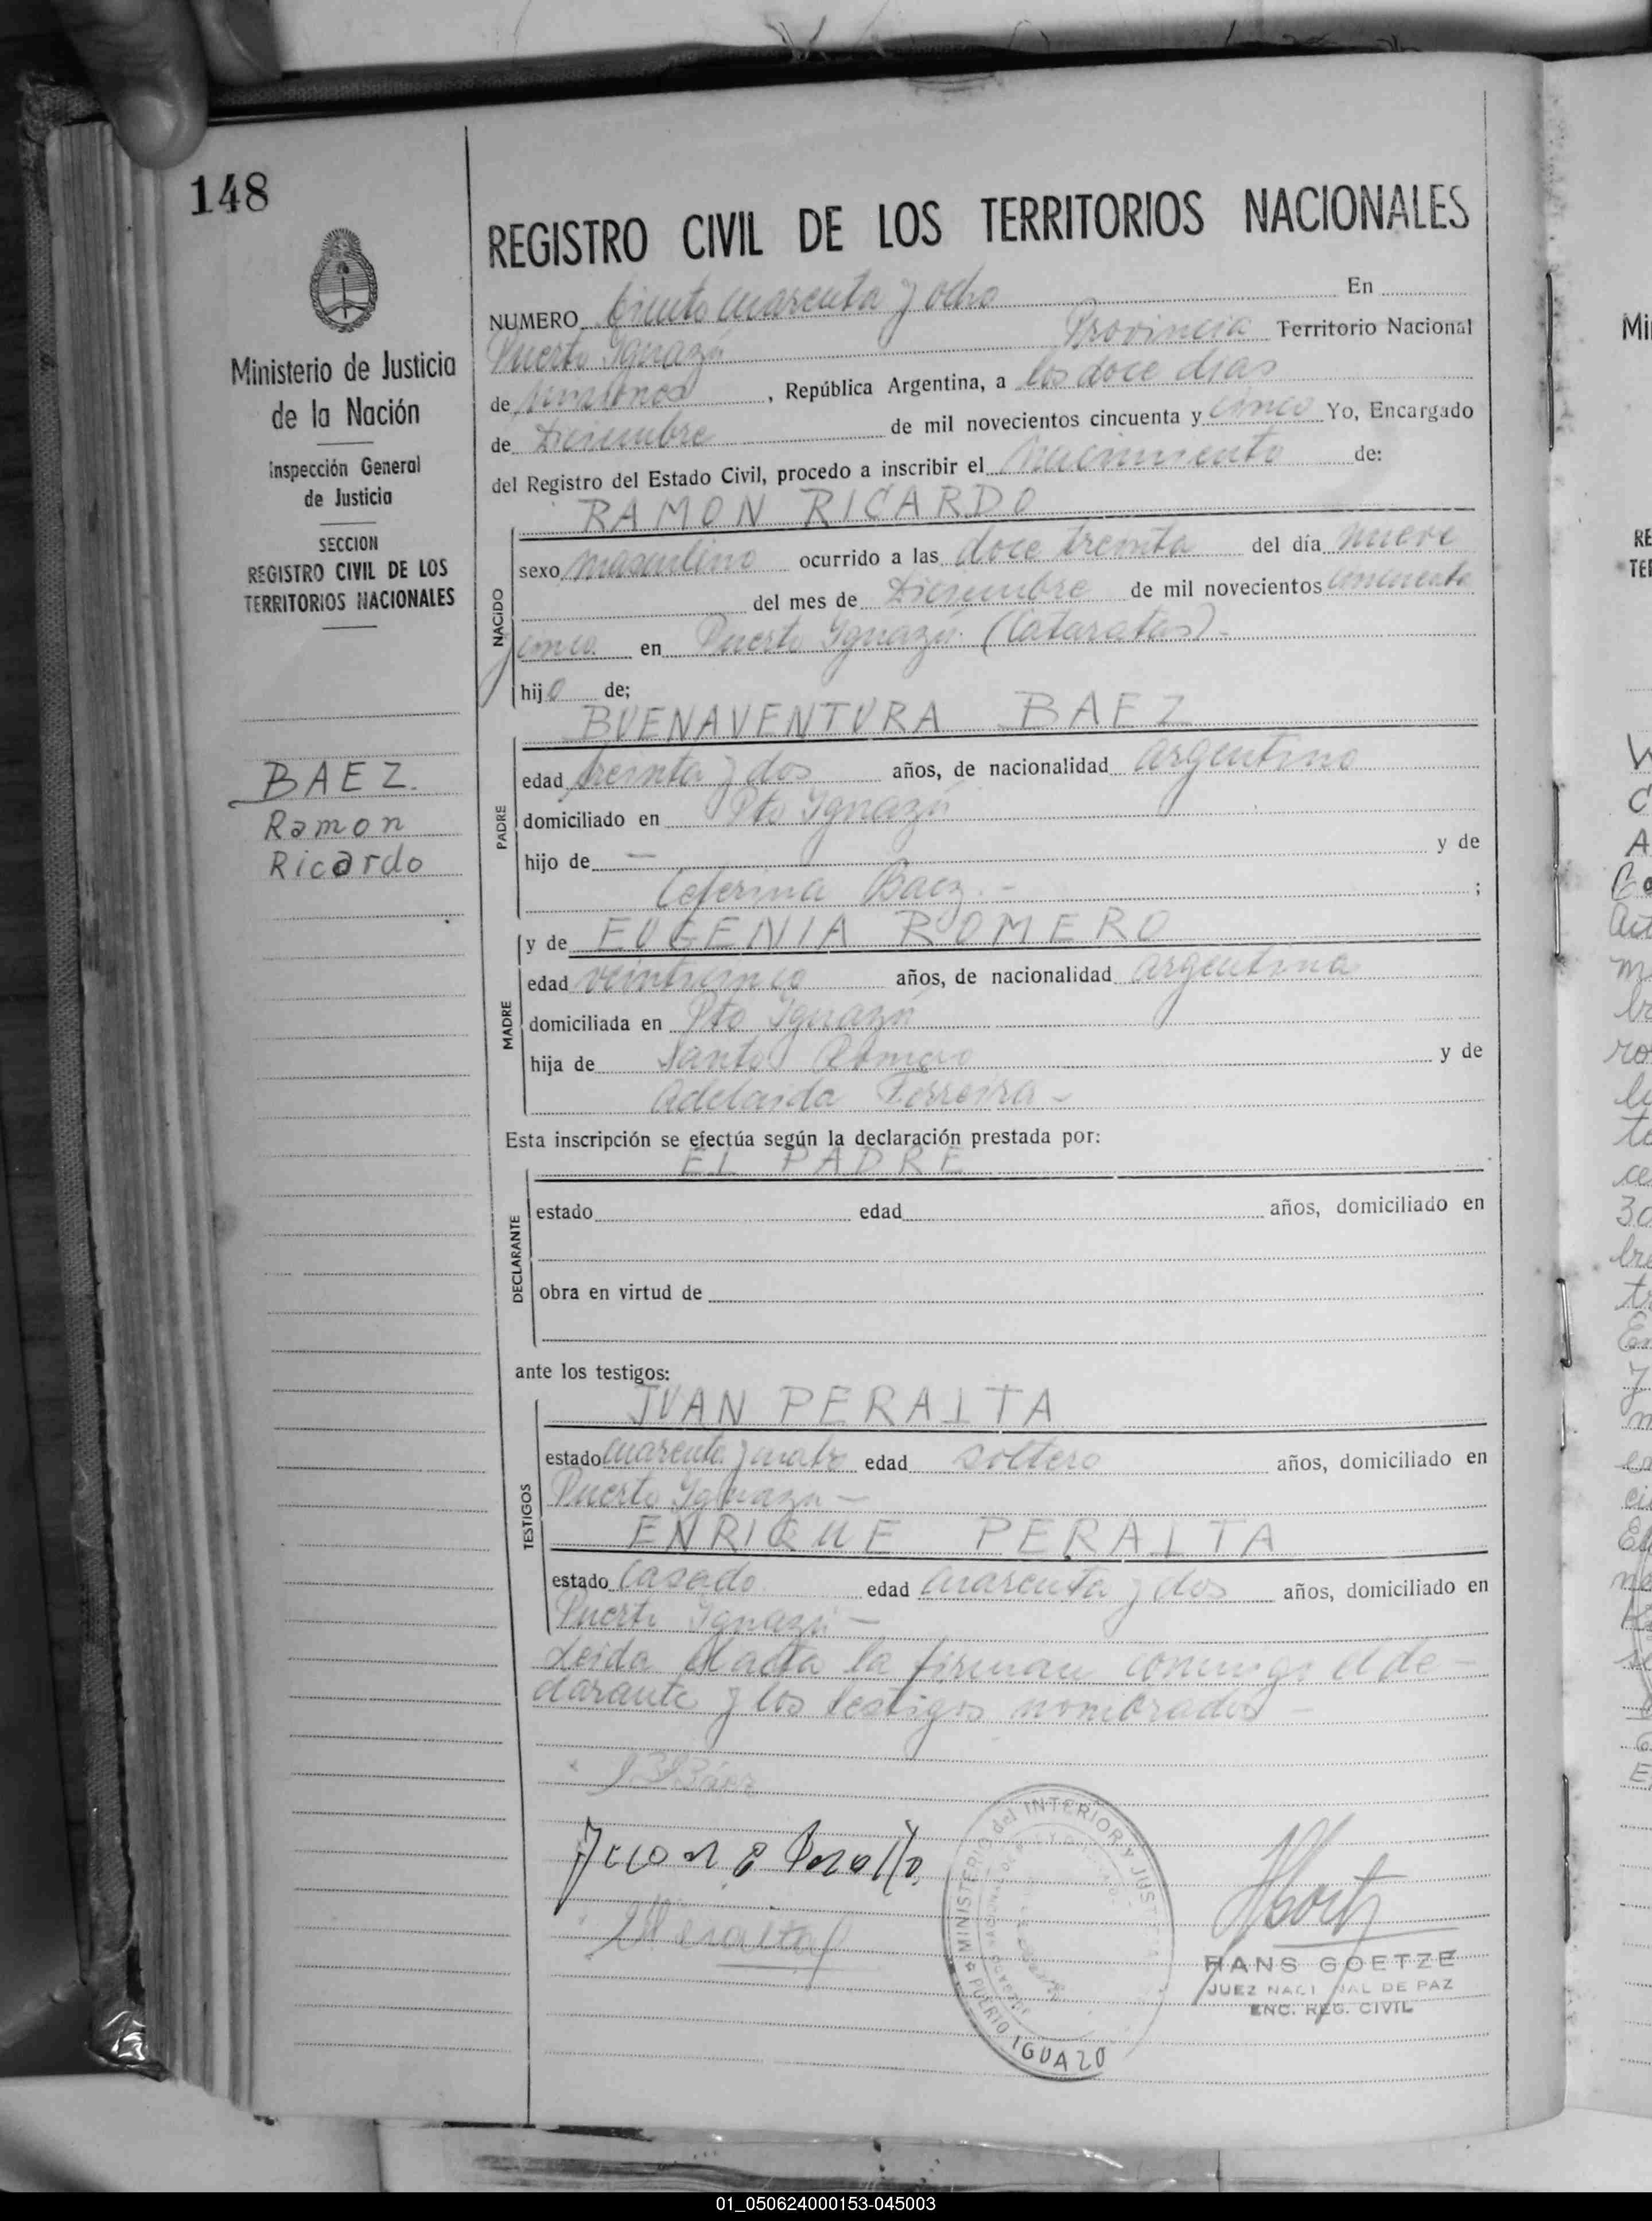 148
Ministerio de Justicia
de la Nación
Inspección General
de Justicia
SECCION
REGISTRO CIVIL DE LOS
TERRITORIOS NACIONALES
BAEZ.
Ramon
Ricardo
REGISTRO CIVIL DE LOS TERRITORIOS NACIONALES
NUMERO Ciento cuarenta y ocho En
Puerto Iguazú Provincia Territorio Nacional
de Misiones, República Argentina, a los doce dias
de Diciembre de mil novecientos cincuenta y cinco Yo, Encargado
del Registro del Estado Civil, procedo a inscribir el nacimiento de:
RAMON RICARDO
NACIDO
sexo masculino ocurrido a las doce treinta del día nueve
del mes de Diciembre de mil novecientos cincuenta
y cinco. en Puerto Iguazú. (Cataratas).-
hijo de;
BUENAVENTURA BAEZ
PADRE
edad treinta y dos años, de nacionalidad argentino
domiciliado en Pto Iguazú
hijo de — y de
Ceferina Baez.- ;
y de EUGENIA ROMERO
MADRE
edad veinticinco años, de nacionalidad argentina
domiciliada en Pto Iguazú
hija de Santos Romero y de
Adelaida Ferreira -
Esta inscripción se efectúa según la declaración prestada por:
EL PADRE
DECLARANTE
estado edad años, domiciliado en
obra en virtud de
ante los testigos:
JUAN PERALTA
TESTIGOS
estado cuarenta y cuatro edad soltero años, domiciliado en
Puerto Iguazu -
ENRIQUE PERALTA
estado Casado edad cuarenta y dos años, domiciliado en
Puerto Iguazú -
Leida el acta la firman conmigo el de-
clarante y los testigos nombrados -
Báez
Juan E Peralta
Peralta
MINISTERIO del INTERIOR y JUSTICIA
PUERTO IGUAZU
HANS GOETZE
JUEZ NACIONAL DE PAZ
ENC. REG. CIVIL
Mi
RE
TE
01_050624000153-045003